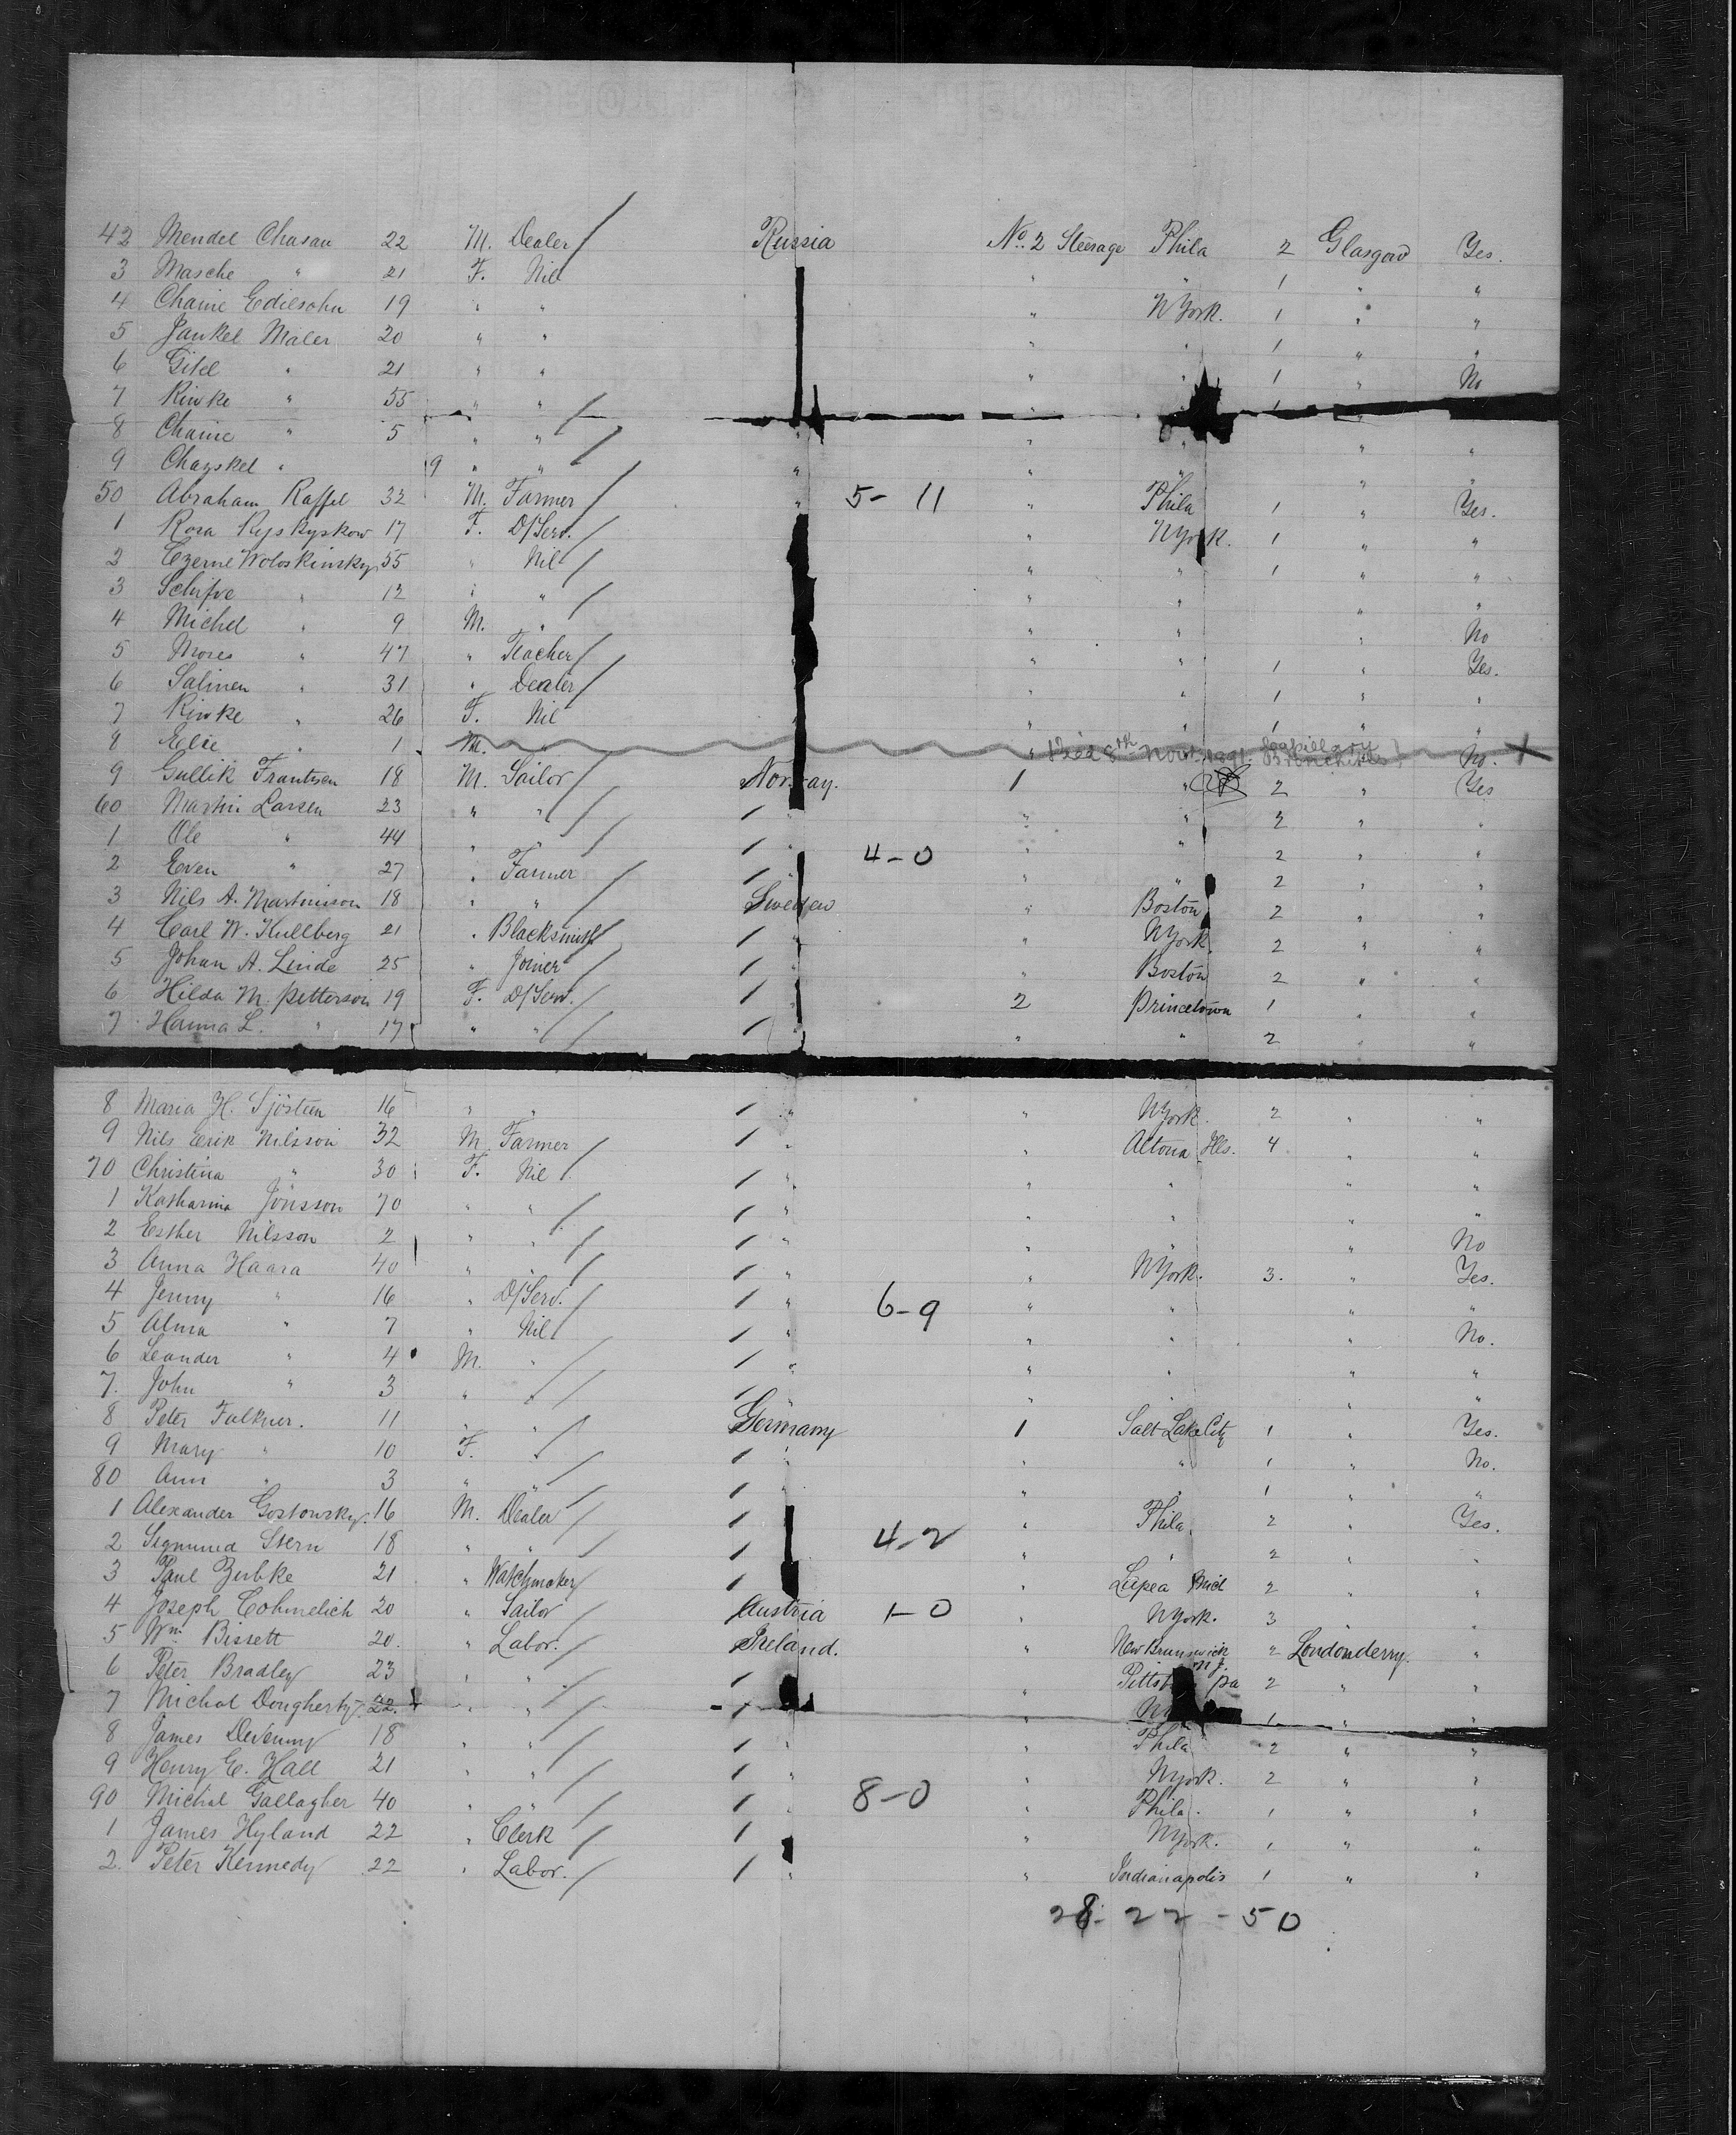 42 Mendel Chasan 22 M. Dealer Russia No. 2 Steerage Phila 2 Glasgow Yes.
3 Masche " 21 F. Nil " " 1 " "
4 Chaine Edilsohn 19 " " " NYork. 1 " "
5 Jankel Maler 20 " " " " 1 " "
6 Gitel " 21 " " " " 1 " No
7 Riwke " 55 " " " 1 "
8 Chaine " 5 " " " " " " "
9 Chayskel " 9 " " " " " " "
50 Abraham Raffel 32 M. Farmer " 5-11 " Phila 1 " Yes.
1 Rosa Ryskyskow 17 F. D/Serv. " NYork. 1 " "
2 Czerne Woloskinsky 55 " Nil " " 1 " "
3 " 12 " " " " " "
4 Michel " 9 M. " " " " No
5 Moses " 47 " Teacher " " 1 " Yes.
6 Salmen " 31 " Dealer " " 1 " "
7 Riwke " 26 F. Nil " " 1 " "
8 Elie " 1 M. " " Died 8th Nov. 1891. Capillary Bronchitis No. X
9 Gullik Frantsen 18 M. Sailor Norway. 1 " 2 " Yes
60 Martin Larsen 23 " " " " " 2 " "
1 Ole " 44 " " " 4-0 " " 2 " "
2 Even " 27 " Farmer " " " 2 " "
3 Nils A. Martinsson 18 " " Sweden " Boston 2 " "
4 Carl W. Kullberg 21 " Blacksmith " " NYork. 2 " "
5 Johan A. Linde 25 " Joiner " " Boston 2 " "
6 Hilda M. Petterson 19 F. D/Serv. " 2 Princetown 1 " "
7 Hanna L. " 17 " " " " " 2 " "
8 Maria H. Sjösteen 16 " " " " NYork. 2 " "
9 Nils Erik Nilsson 32 M. Farmer " " Altona Ills. 4 " "
70 Christina " 30 F. Nil " " " " "
1 Katharina Jönsson 70 " " " " " " "
2 Esther Nilsson 2 " " " " " " No
3 Anna Haara 40 " " " " NYork. 3. " Yes.
4 Jenny " 16 " D/Serv. " 6-9 " " " "
5 Alma " 7 " Nil " " " " No.
6 Leander " 4 M. " " " " " "
7. John " 3 " " " " " " "
8 Peter Falkner. 11 " " Germany 1 Salt Lake City 1 " Yes.
9 Mary " 10 F. " " " " 1 " No.
80 Ann " 3 " " " " " 1 " "
1 Alexander Gostowsky. 16 M. Dealer " " Phila. 2 " Yes.
2 Sigmund Stern 18 " " " 4-2 " " 2 " "
3 Paul Zubke 21 " Watchmaker " " Lapea Mich 2 " "
4 Joseph Cohmelich 20 " Sailor Austria 1-0 " NYork. 3 " "
5 Wm. Bissett 20. " Labor. Ireland. " New Brunswick N.J. 2 Londonderry. "
6 Peter Bradley 23 " " " " Pa 2 " "
7 Michal Dougherty. 22. " " " " 1 " "
8 James Devenny 18 " " " " Phila 2 " "
9 Henry E. Hall 21 " " " " NYork. 2 " "
90 Michal Gallagher 40 " " " 8-0 " Phila. 1 " "
1 James Hyland 22 " Clerk " " NYork. 1 " "
2. Peter Kennedy 22 " Labor. " " Indianapolis 1 " "
28-22-50